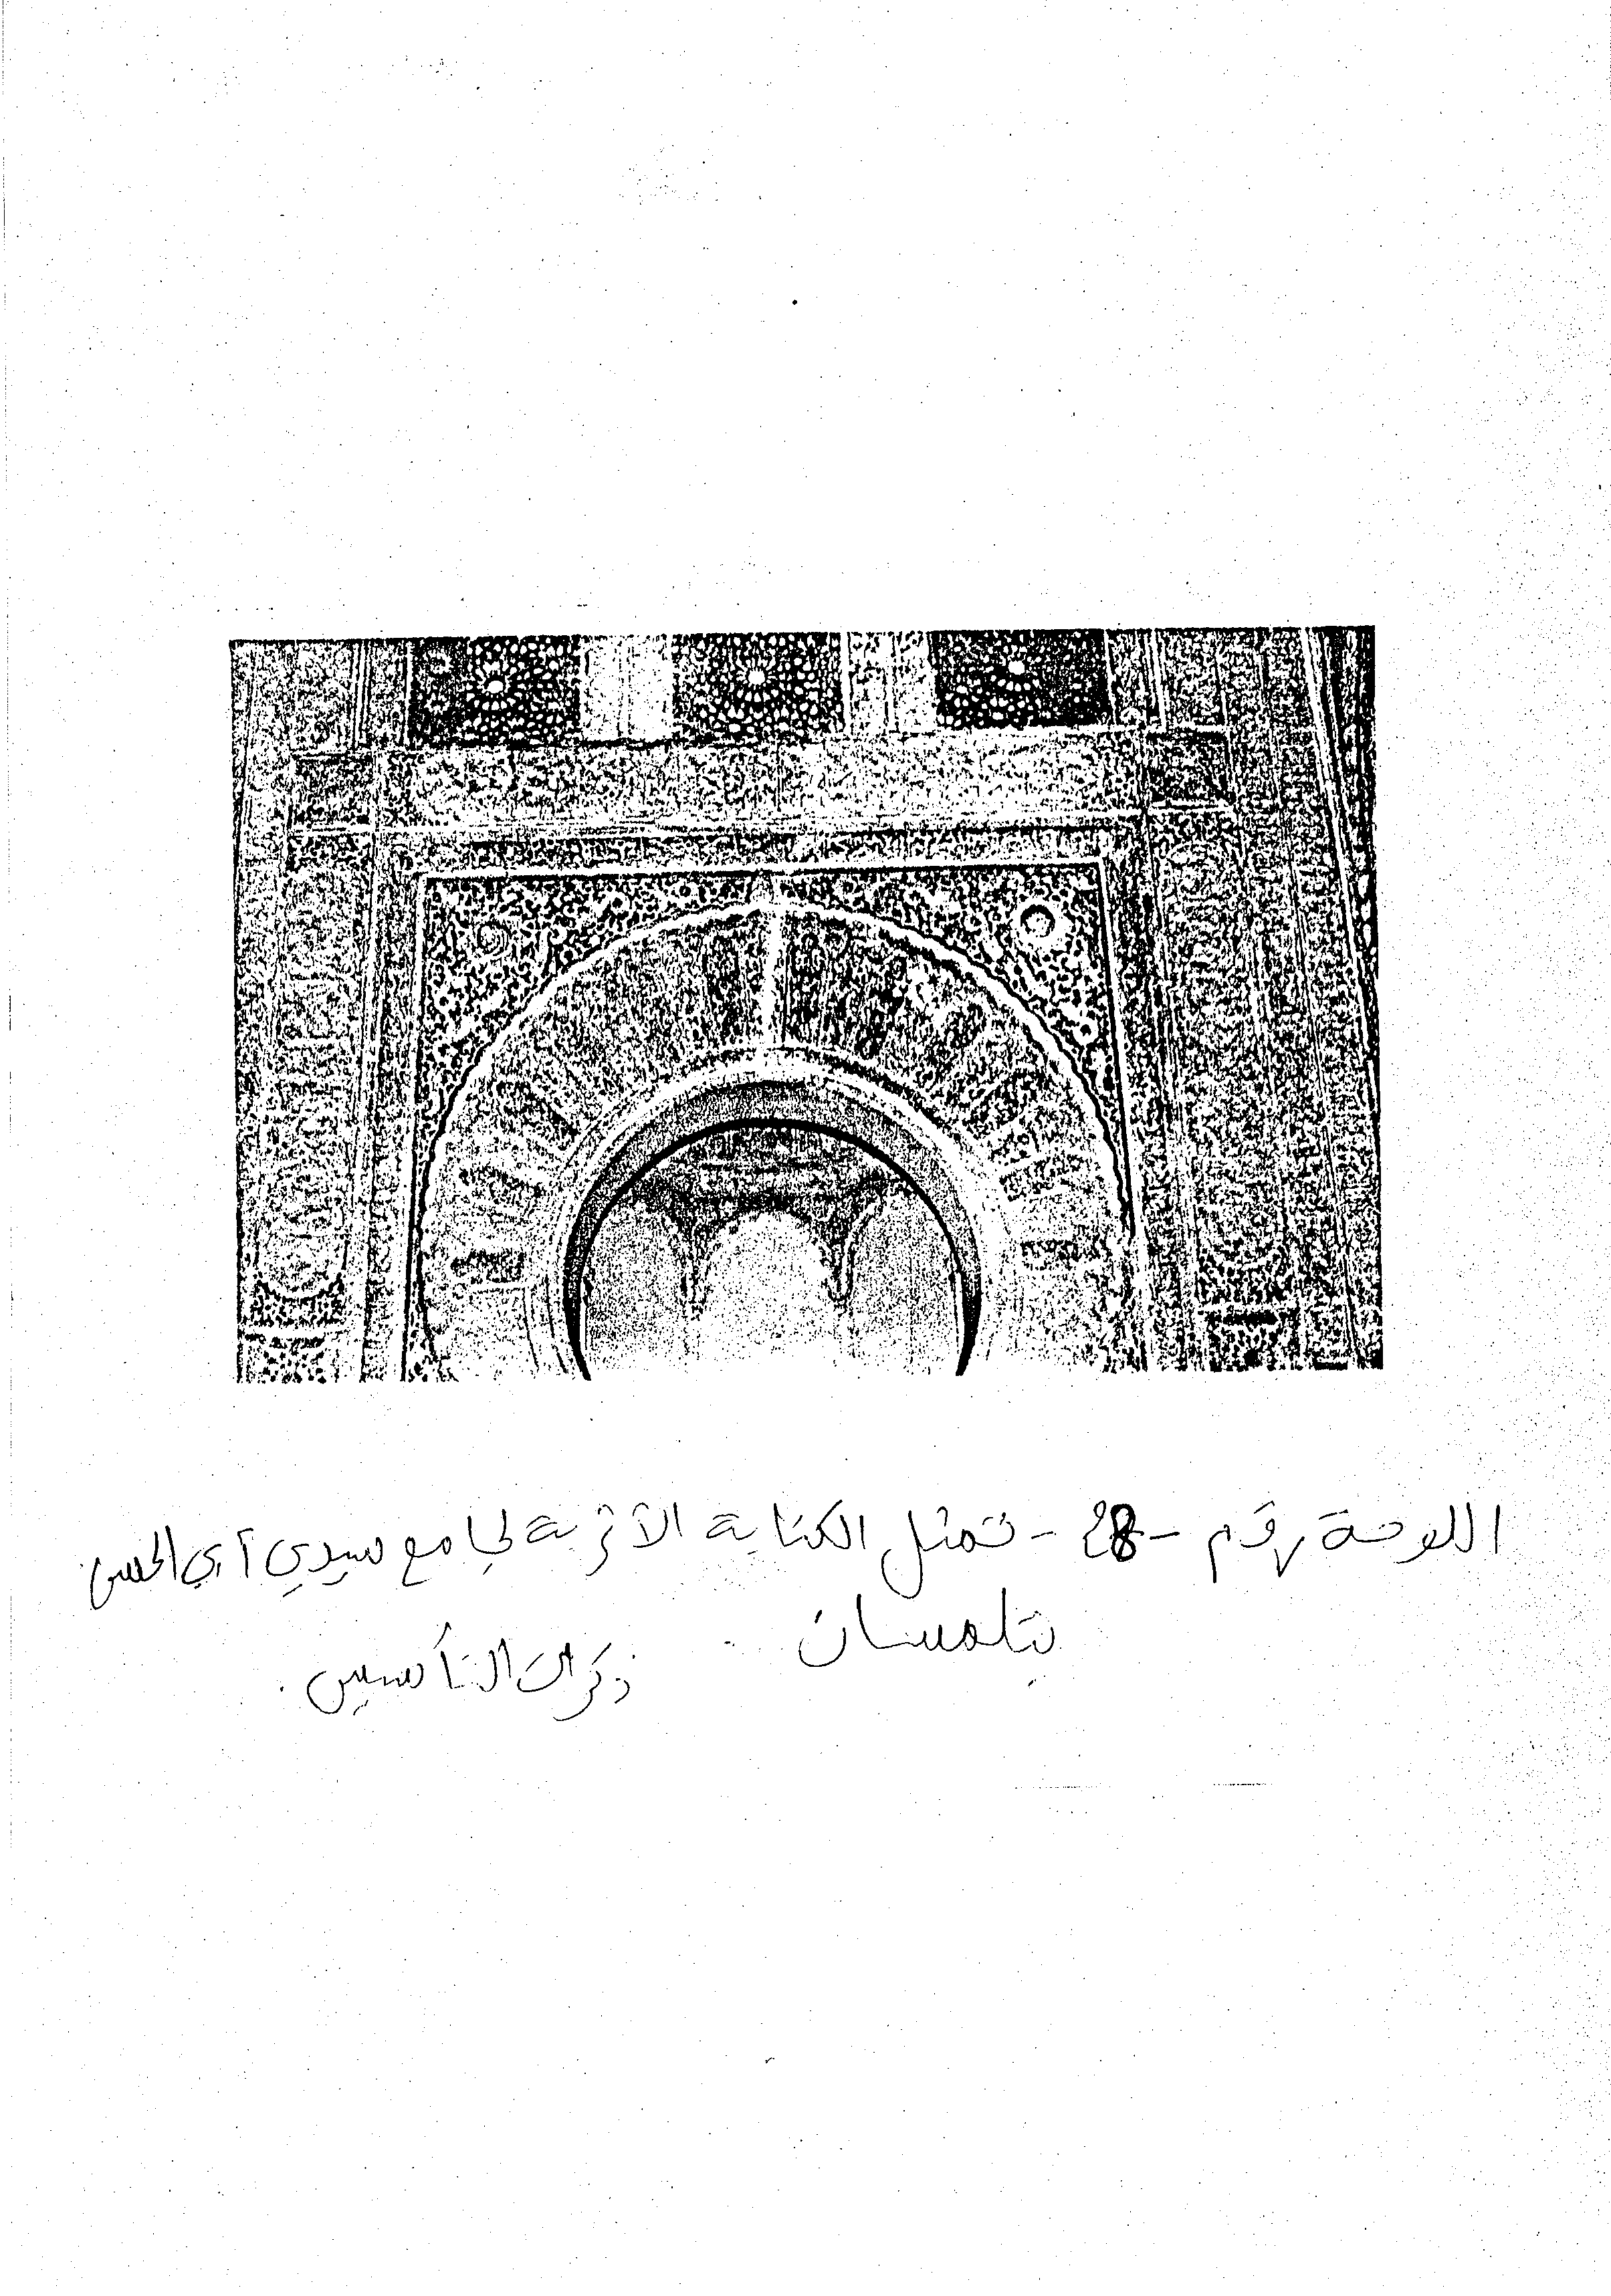 اللوحة رقم - 28 - تمثل الكتابة الأثرية لجامع سيدي أبي الحسن
بتلمسان
ذات التأسيس.